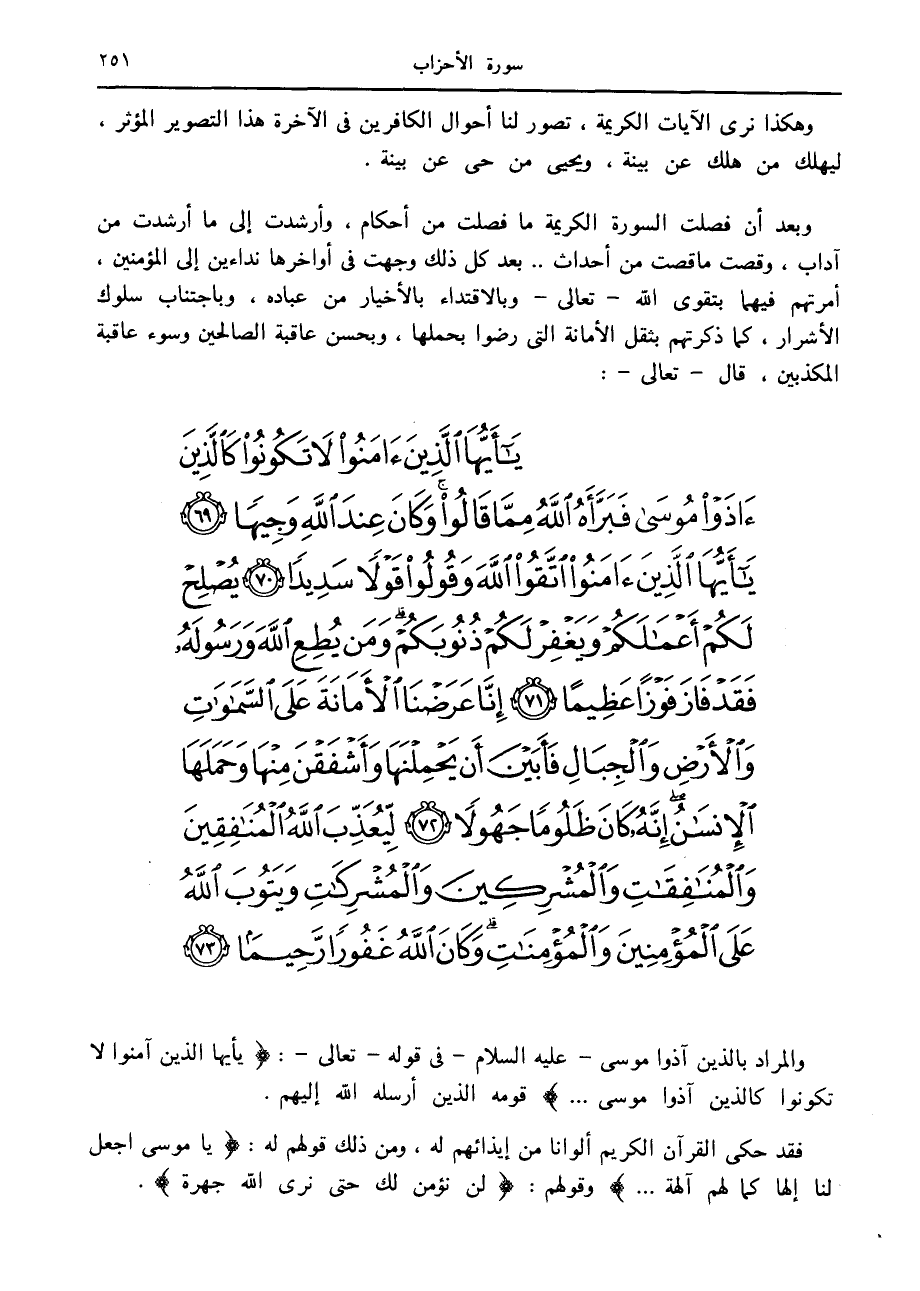 سورة الأحزاب ٢٥١
وهكذا نرى الآيات الكريمة ، تصور لنا أحوال الكافرين فى الآخرة هذا التصوير المؤثر ،
ليهلك من هلك عن بينة ، ويحيى من حى عن بينة .
وبعد أن فصلت السورة الكريمة ما فصلت من أحكام ، وأرشدت إلى ما أرشدت من
آداب ، وقصت ماقصت من أحداث .. بعد كل ذلك وجهت فى أواخرها نداءين إلى المؤمنين ،
أمرتهم فيهما بتقوى الله - تعالى - وبالاقتداء بالأخيار من عباده ، وباجتناب سلوك
الأشرار ، كما ذكرتهم بثقل الأمانة التى رضوا بحملها ، وبحسن عاقبة الصالحين وسوء عاقبة
المكذبين ، قال - تعالى - :
يَٰٓأَيُّهَا ٱلَّذِينَ ءَامَنُوا۟ لَا تَكُونُوا۟ كَٱلَّذِينَ
ءَاذَوْا۟ مُوسَىٰ فَبَرَّأَهُ ٱللَّهُ مِمَّا قَالُوا۟ ۚ وَكَانَ عِندَ ٱللَّهِ وَجِيهًا ٦٩
يَٰٓأَيُّهَا ٱلَّذِينَ ءَامَنُوا۟ ٱتَّقُوا۟ ٱللَّهَ وَقُولُوا۟ قَوْلًا سَدِيدًا ٧٠ يُصْلِحْ
لَكُمْ أَعْمَٰلَكُمْ وَيَغْفِرْ لَكُمْ ذُنُوبَكُمْ ۗ وَمَن يُطِعِ ٱللَّهَ وَرَسُولَهُۥ
فَقَدْ فَازَ فَوْزًا عَظِيمًا ٧١ إِنَّا عَرَضْنَا ٱلْأَمَانَةَ عَلَى ٱلسَّمَٰوَٰتِ
وَٱلْأَرْضِ وَٱلْجِبَالِ فَأَبَيْنَ أَن يَحْمِلْنَهَا وَأَشْفَقْنَ مِنْهَا وَحَمَلَهَا
ٱلْإِنسَٰنُ ۖ إِنَّهُۥ كَانَ ظَلُومًا جَهُولًا ٧٢ لِّيُعَذِّبَ ٱللَّهُ ٱلْمُنَٰفِقِينَ
وَٱلْمُنَٰفِقَٰتِ وَٱلْمُشْرِكِينَ وَٱلْمُشْرِكَٰتِ وَيَتُوبَ ٱللَّهُ
عَلَى ٱلْمُؤْمِنِينَ وَٱلْمُؤْمِنَٰتِ ۗ وَكَانَ ٱللَّهُ غَفُورًا رَّحِيمًۢا ٧٣
والمراد بالذين آذوا موسى - عليه السلام - فى قوله - تعالى - : ﴿ يأيها الذين آمنوا لا
تكونوا كالذين آذوا موسى ... ﴾ قومه الذين أرسله الله إليهم .
فقد حكى القرآن الكريم ألوانا من إيذائهم له ، ومن ذلك قولهم له : ﴿ يا موسى اجعل
لنا إلها كما لهم آلهة ... ﴾ وقولهم : ﴿ لن نؤمن لك حتى نرى الله جهرة ﴾ .